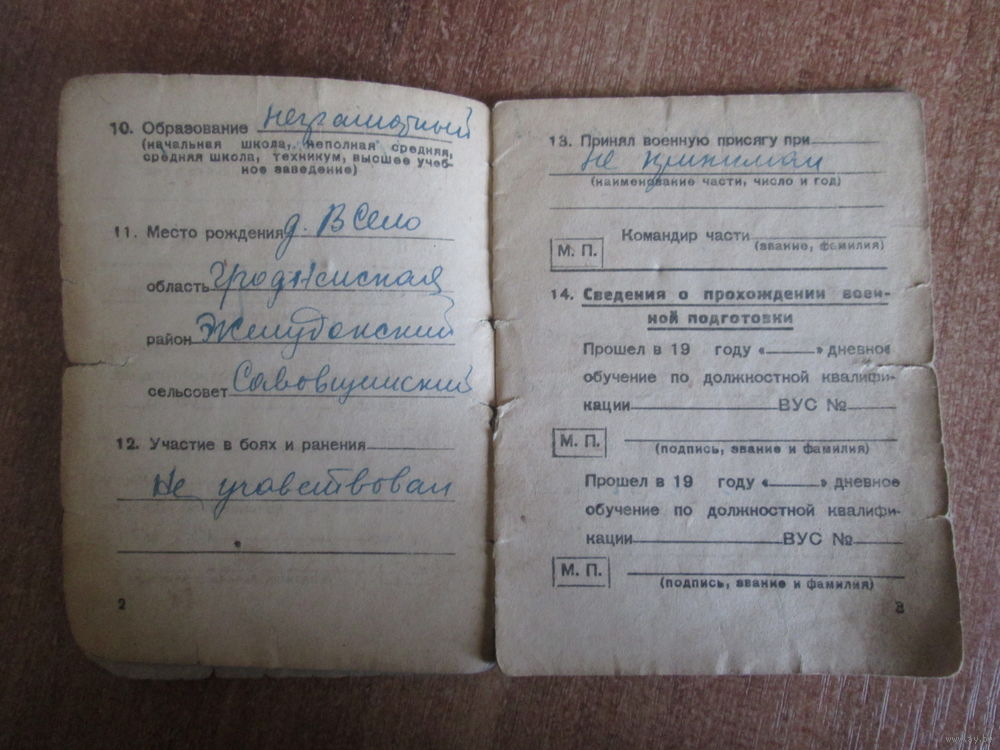 10. Образование неграмотный
(начальная школа, неполная средняя,
средняя школа, техникум, высшее учеб-
ное заведение)
11. Место рождения д. В Село
область Гродненская
район Желудокский
сельсовет
12. Участие в боях и ранения
Не участвовал
2
13. Принял военную присягу при
не принимал
(наименование части, число и год)
Командир части
М. П.
(звание, фамилия)
14. Сведения о прохождении воен-
ной подготовки
Прошел в 19 году «» дневное
обучение по должностной квалифи-
кации ВУС №
М. П.
(подпись, звание и фамилия)
Прошел в 19 году «» дневное
обучение по должностной квалифи-
кации ВУС №
М. П.
(подпись, звание и фамилия)
3